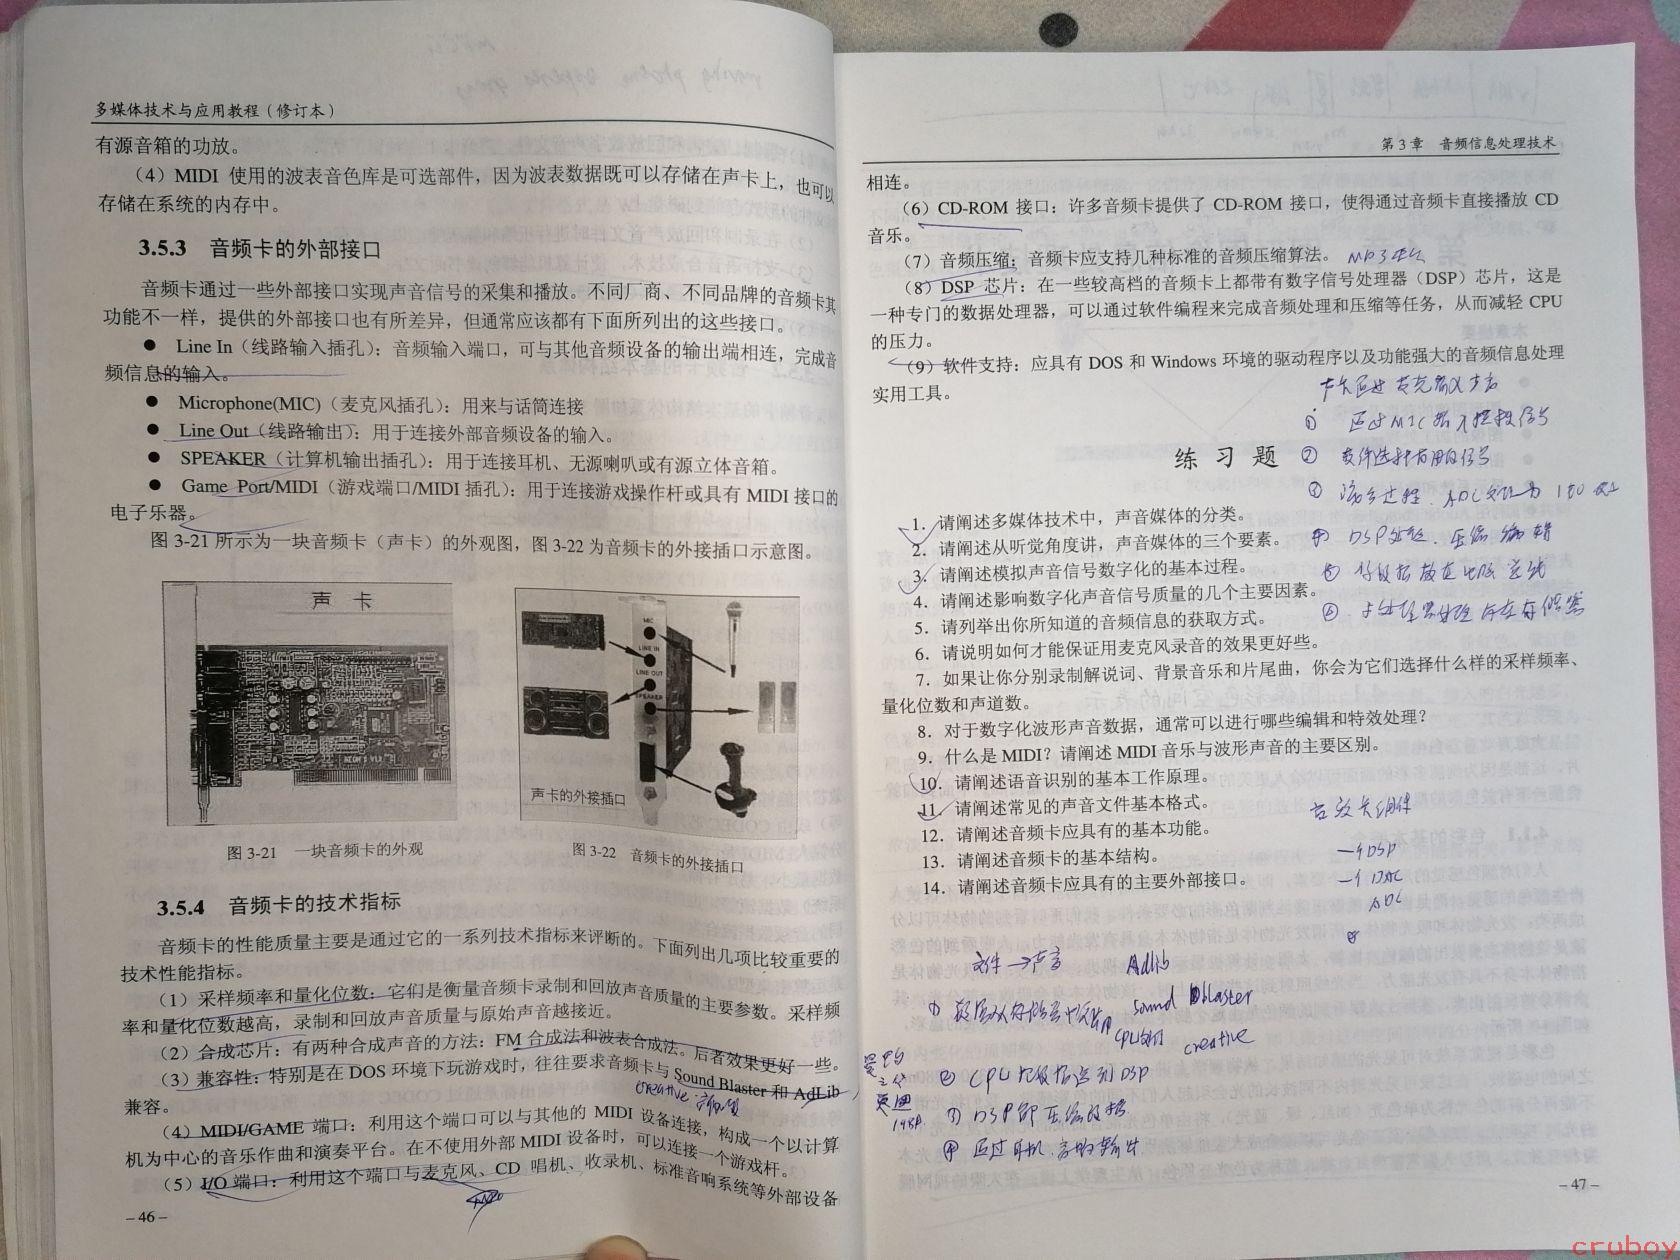 多媒体技术与应用教程（修订本）
有源音箱的功放。
（4）MIDI 使用的波表音色库是可选部件，因为波表数据既可以存储在声卡上，也可以
存储在系统的内存中。
3.5.3 音频卡的外部接口
音频卡通过一些外部接口实现声音信号的采集和播放。不同厂商、不同品牌的音频卡其
功能不一样，提供的外部接口也有所差异，但通常应该都有下面所列出的这些接口。
● Line In（线路输入插孔）：音频输入端口，可与其他音频设备的输出端相连，完成音
频信息的输入。
● Microphone(MIC)（麦克风插孔）：用来与话筒连接
● Line Out（线路输出）：用于连接外部音频设备的输入。
● SPEAKER（计算机输出插孔）：用于连接耳机、无源喇叭或有源立体音箱。
● Game Port/MIDI（游戏端口/MIDI 插孔）：用于连接游戏操作杆或具有 MIDI 接口的
电子乐器。
图 3-21 所示为一块音频卡（声卡）的外观图，图 3-22 为音频卡的外接插口示意图。
声 卡
MIC
LINE IN
LINE OUT
SPEAKER
声卡的外接插口
图 3-21 一块音频卡的外观
图 3-22 音频卡的外接插口
3.5.4 音频卡的技术指标
音频卡的性能质量主要是通过它的一系列技术指标来评断的。下面列出几项比较重要的
技术性能指标。
（1）采样频率和量化位数：它们是衡量音频卡录制和回放声音质量的主要参数。采样频
率和量化位数越高，录制和回放声音质量与原始声音越接近。
（2）合成芯片：有两种合成声音的方法：FM 合成法和波表合成法。后者效果更好一些。
（3）兼容性：特别是在 DOS 环境下玩游戏时，往往要求音频卡与 Sound Blaster 和 AdLib
兼容。
creative
（4）MIDI/GAME 端口：利用这个端口可以与其他的 MIDI 设备连接，构成一个以计算
机为中心的音乐作曲和演奏平台。在不使用外部 MIDI 设备时，可以连接一个游戏杆。
（5）I/O 端口：利用这个端口与麦克风、CD 唱机、收录机、标准音响系统等外部设备
– 46 –
第 3 章 音频信息处理技术
相连。
（6）CD-ROM 接口：许多音频卡提供了 CD-ROM 接口，使得通过音频卡直接播放 CD
音乐。
（7）音频压缩：音频卡应支持几种标准的音频压缩算法。 MP3
（8）DSP 芯片：在一些较高档的音频卡上都带有数字信号处理器（DSP）芯片，这是
一种专门的数据处理器，可以通过软件编程来完成音频处理和压缩等任务，从而减轻 CPU
的压力。
（9）软件支持：应具有 DOS 和 Windows 环境的驱动程序以及功能强大的音频信息处理
实用工具。
① 通过MIC
练 习 题
1．请阐述多媒体技术中，声音媒体的分类。
2．请阐述从听觉角度讲，声音媒体的三个要素。
④ DSP处理．压缩 编辑
3．请阐述模拟声音信号数字化的基本过程。
4．请阐述影响数字化声音信号质量的几个主要因素。
5．请列举出你所知道的音频信息的获取方式。
6．请说明如何才能保证用麦克风录音的效果更好些。
7．如果让你分别录制解说词、背景音乐和片尾曲，你会为它们选择什么样的采样频率、
量化位数和声道数。
8．对于数字化波形声音数据，通常可以进行哪些编辑和特效处理？
9．什么是 MIDI？请阐述 MIDI 音乐与波形声音的主要区别。
10．请阐述语音识别的基本工作原理。
11．请阐述常见的声音文件基本格式。
12．请阐述音频卡应具有的基本功能。
13．请阐述音频卡的基本结构。
14．请阐述音频卡应具有的主要外部接口。
一个DSP
一个DAC
ADC
文件→声音 Adlib
Sound Blaster
creative
② CPU把数据送到DSP
③ DSP解压缩数据
④ 通过耳机、音响输出
– 47 –
cruboy